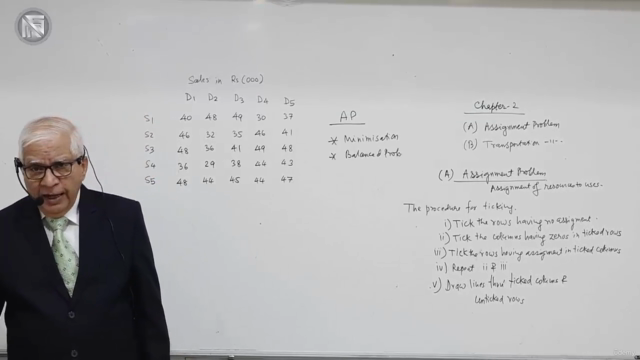 Sales in Rs (000)
D1 D2 D3 D4 D5
S1 40 48 49 30 37
S2 46 32 35 46 41
S3 48 36 41 49 48
S4 36 29 38 44 43
S5 48 44 45 44 47
AP
* Minimisation
* Balanced Prob
Chapter-2
(A) Assignment Problem
(B) Transportation -"-
(A) Assignment Problem
Assignment of resources to uses.
The procedure for ticking.
i) Tick the rows having no assigment.
ii) Tick the columns having zeros in ticked rows
iii) Tick the rows having assignment in ticked columns
iv) Repeat ii & iii
v) Draw lines thro' ticked columns &
unticked rows